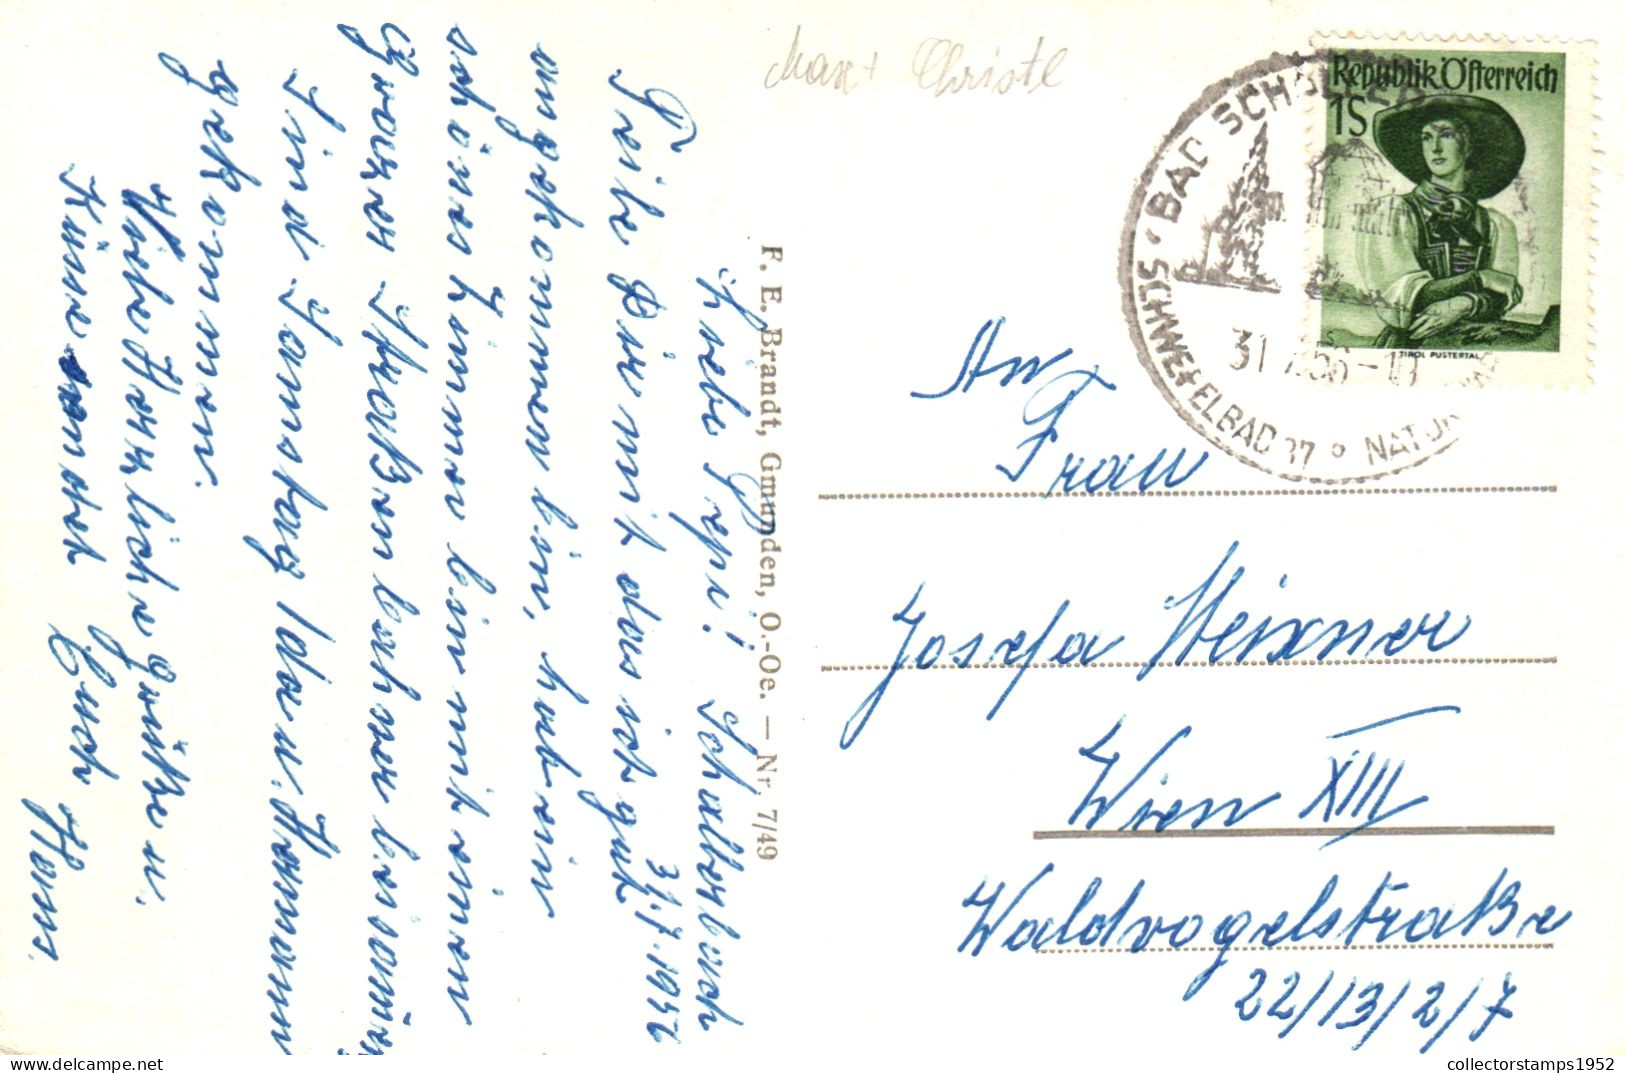 Max + Christl
Schallerbach
31.7.1956
Liebe Pepi!
Teile Dir mit das ich gut
angekommen bin, habe ein
schönes Zimmer bin mit einem
Grazer Straßenbahner beisamen
Sind Samstag Ida u. Hermann
gekommen.
Viele Herzliche Grüße u.
Küsse sendet Euch Hans.
F. E. Brandt, Gmunden, O.-Oe. — Nr. 7/49
Republik Österreich
1S
TIROL PUSTERTAL
BAD SCHALLERB
SCHWEFELBAD 37° NATUR
31.7.56-1
An
Frau
Josefa Weixner
Wien XIII
Waldvogelstraße
22/13/2/7
collectorstamps1952